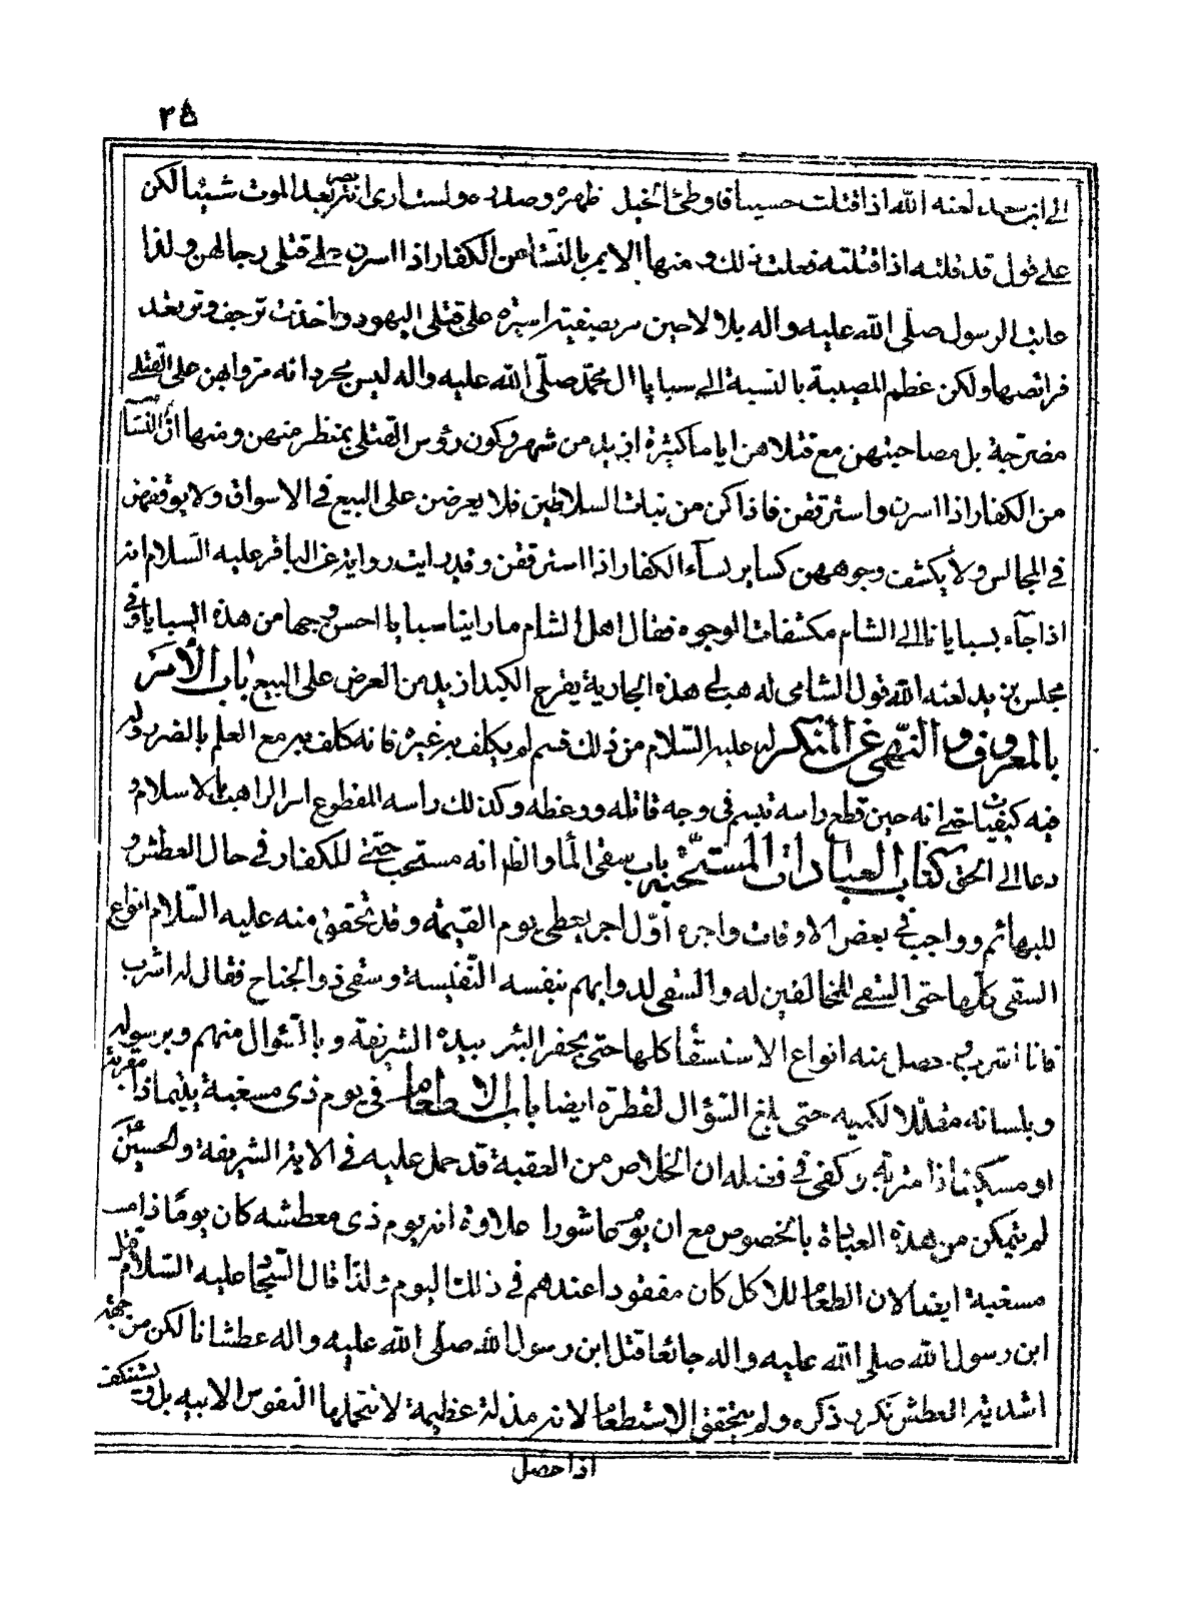 ٢٥
الى ابن سعد لعنه الله اذا قتلت حسينا فاوطئ الخيل ظهره وصدره ولست ارى انه يضر بعد الموت شيئا لكن
على قول قد قلته اذا قتلته فعلت ذلك و منها الا يمر بالنسا من الكفار اذا اسرن على قتلى رجالهن ولذا
عاتب الرسول صلى الله عليه واله بلالا حين مر بصفية اسيرة على قتلى اليهود واخذت ترجف وترتعد
فرائصها ولكن عظم المصيبة بالنسبة الى سبايا ال محمد صلى الله عليه واله ليس مجرد انه مروا بهن على القتلى
مضرجة بل مصاحبتهن مع قتلاهن اياما كثيرة ازيد من شهر وكون رؤس القتلى بمنظر منهن ومنها ان النسا
من الكفار اذا اسرن واسترققن فاذا كن من بنات السلاطين فلا يعرضن على البيع فى الاسواق ولا يوقفن
فى المجالس ولا يكشف وجوههن كساير نسآء الكفار اذا استرققن وقد رايت رواية عن الباقر عليه السلام انه
اذا جآء بسبايانا الى الشام مكشفات الوجوه فقال اهل الشام ما راينا سبايا احسن وجها من هذه السبايا وفى
مجلس يزيد لعنه الله قول الشامى له هب لى هذه الجارية يقرح الكبد ازيد من العرض على البيع باب الأمر
بالمعروف والنهى عن المنكر له عليه السلام من ذلك قسم لم يكلف به غيره فانه كلف به مع العلم بالضرر وله
فيه كيفيات حتى انه حين قطع راسه تبسم فى وجه قاتله ووعظه وكذلك راسه المقطوع امر الراهب بالاسلام و
دعا الى الحق كتاب العبادات المستحبه باب سقى المآ والظاهر انه مستحب حتى للكفار فى حال العطش و
للبهائم وواجب فى بعض الاوقات واجره اول اجر يعطى يوم القيمة وقد تحقق منه عليه السلام انواع
السقى كلها حتى السقى للمخالفين له والسقى لدوابهم بنفسه النفيسة وسقى ذو الجناح فقال له اشرب
فانا اشرب وحصل منه انواع الاستسقآ كلها حتى بحفر البئر بيده الشريفة وبالسؤال منهم وبرسوله
وبلسانه حتى بلغ السؤال لقطرة ايضا باب الاطعام فى يوم ذى مسغبة يتيما ذا مقربة
او مسكينا ذا متربة وكفى فى فضله ان الخلاص من العقبة قد حمل عليه فى الاية الشريفة والحسين ع
لم يتمكن من هذه العبادة بالخصوص مع ان يوم عاشورا علاوة انه يوم ذى معطشه كان يوما ذا
مسغبة ايضا لان الطعام للاكل كان مفقودا عندهم فى ذلك اليوم ولذا قال السجاد عليه السلام قتل
ابن رسول الله صلى الله عليه واله جائعا قتل ابن رسول الله صلى الله عليه واله عطشانا لكن من جهة
اشدية العطش تكرر ذكره ولم يتحقق الاستطعام لانه مذلة عظيمة لا تتحملها النفوس الابيه بل وتستنكف
اذا حصل